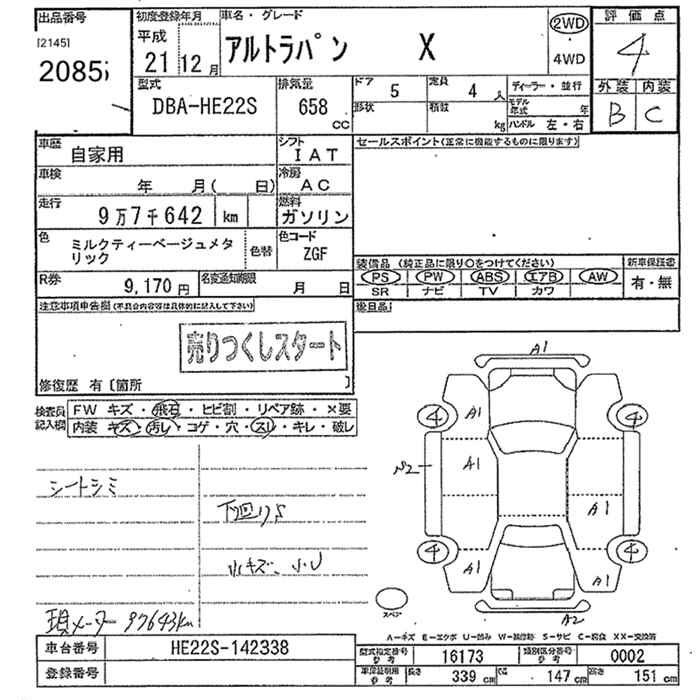 出品番号
[2145]
2085
初度登録年月
平成
21 12 月
車名・グレード
アルトラパン X
2WD
4WD
評価点
4
外装 内装
B C
型式
DBA-HE22S
排気量
658 CC
ドア 5
定員 4 人
形状
積載 kg
ディーラー・並行
モデル年式 年
ハンドル 左・右
車歴
自家用
シフト
IAT
セールスポイント(正常に機能するものに限ります)
車検
年 月( 日)
冷房
AC
走行
9万7千642 km
燃料
ガソリン
色
ミルクティーベージュメタ
リック
色替
色コード
ZGF
装備品 (純正品に限り○をつけてください)
新車保証書
PS PW ABS エアB AW
SR ナビ TV カワ
有・無
R券
9,170円
名変通知期限
月 日
後日品
注意事項申告欄(不具合内容等は具体的に記入して下さい)
売りつくしスタート
修復歴 有〔箇所 〕
検査員
記入欄
FW キズ・飛石・ヒビ割・リペア跡・×要
内装 キズ・汚レ・コゲ・穴・スレ・キレ・破レ
シートシミ
下回りS
小キズ、小U
現メーター 97643km
A1
4 A1 4
A1
A1
4 4
A1 A1
スペア
A2
A-キズ E-エクボ U-凹み W-補修跡 S-サビ C-腐食 XX-交換済
車台番号
HE22S-142338
登録番号
型式指定番号
参考
16173
類別区分番号
参考
0002
車庫証明用
参考
長さ 339 cm
巾 147 cm
高さ 151 cm